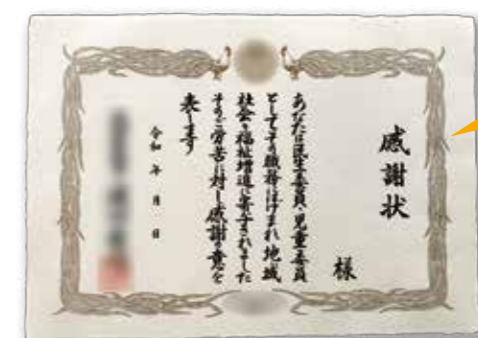 感謝状
様
あなたは民生委員・児童委員
としてその職務にはげまれ地域
社会の福祉増進に寄与されました
そのご労苦に対し感謝の意を
表します
令和 年 月 日